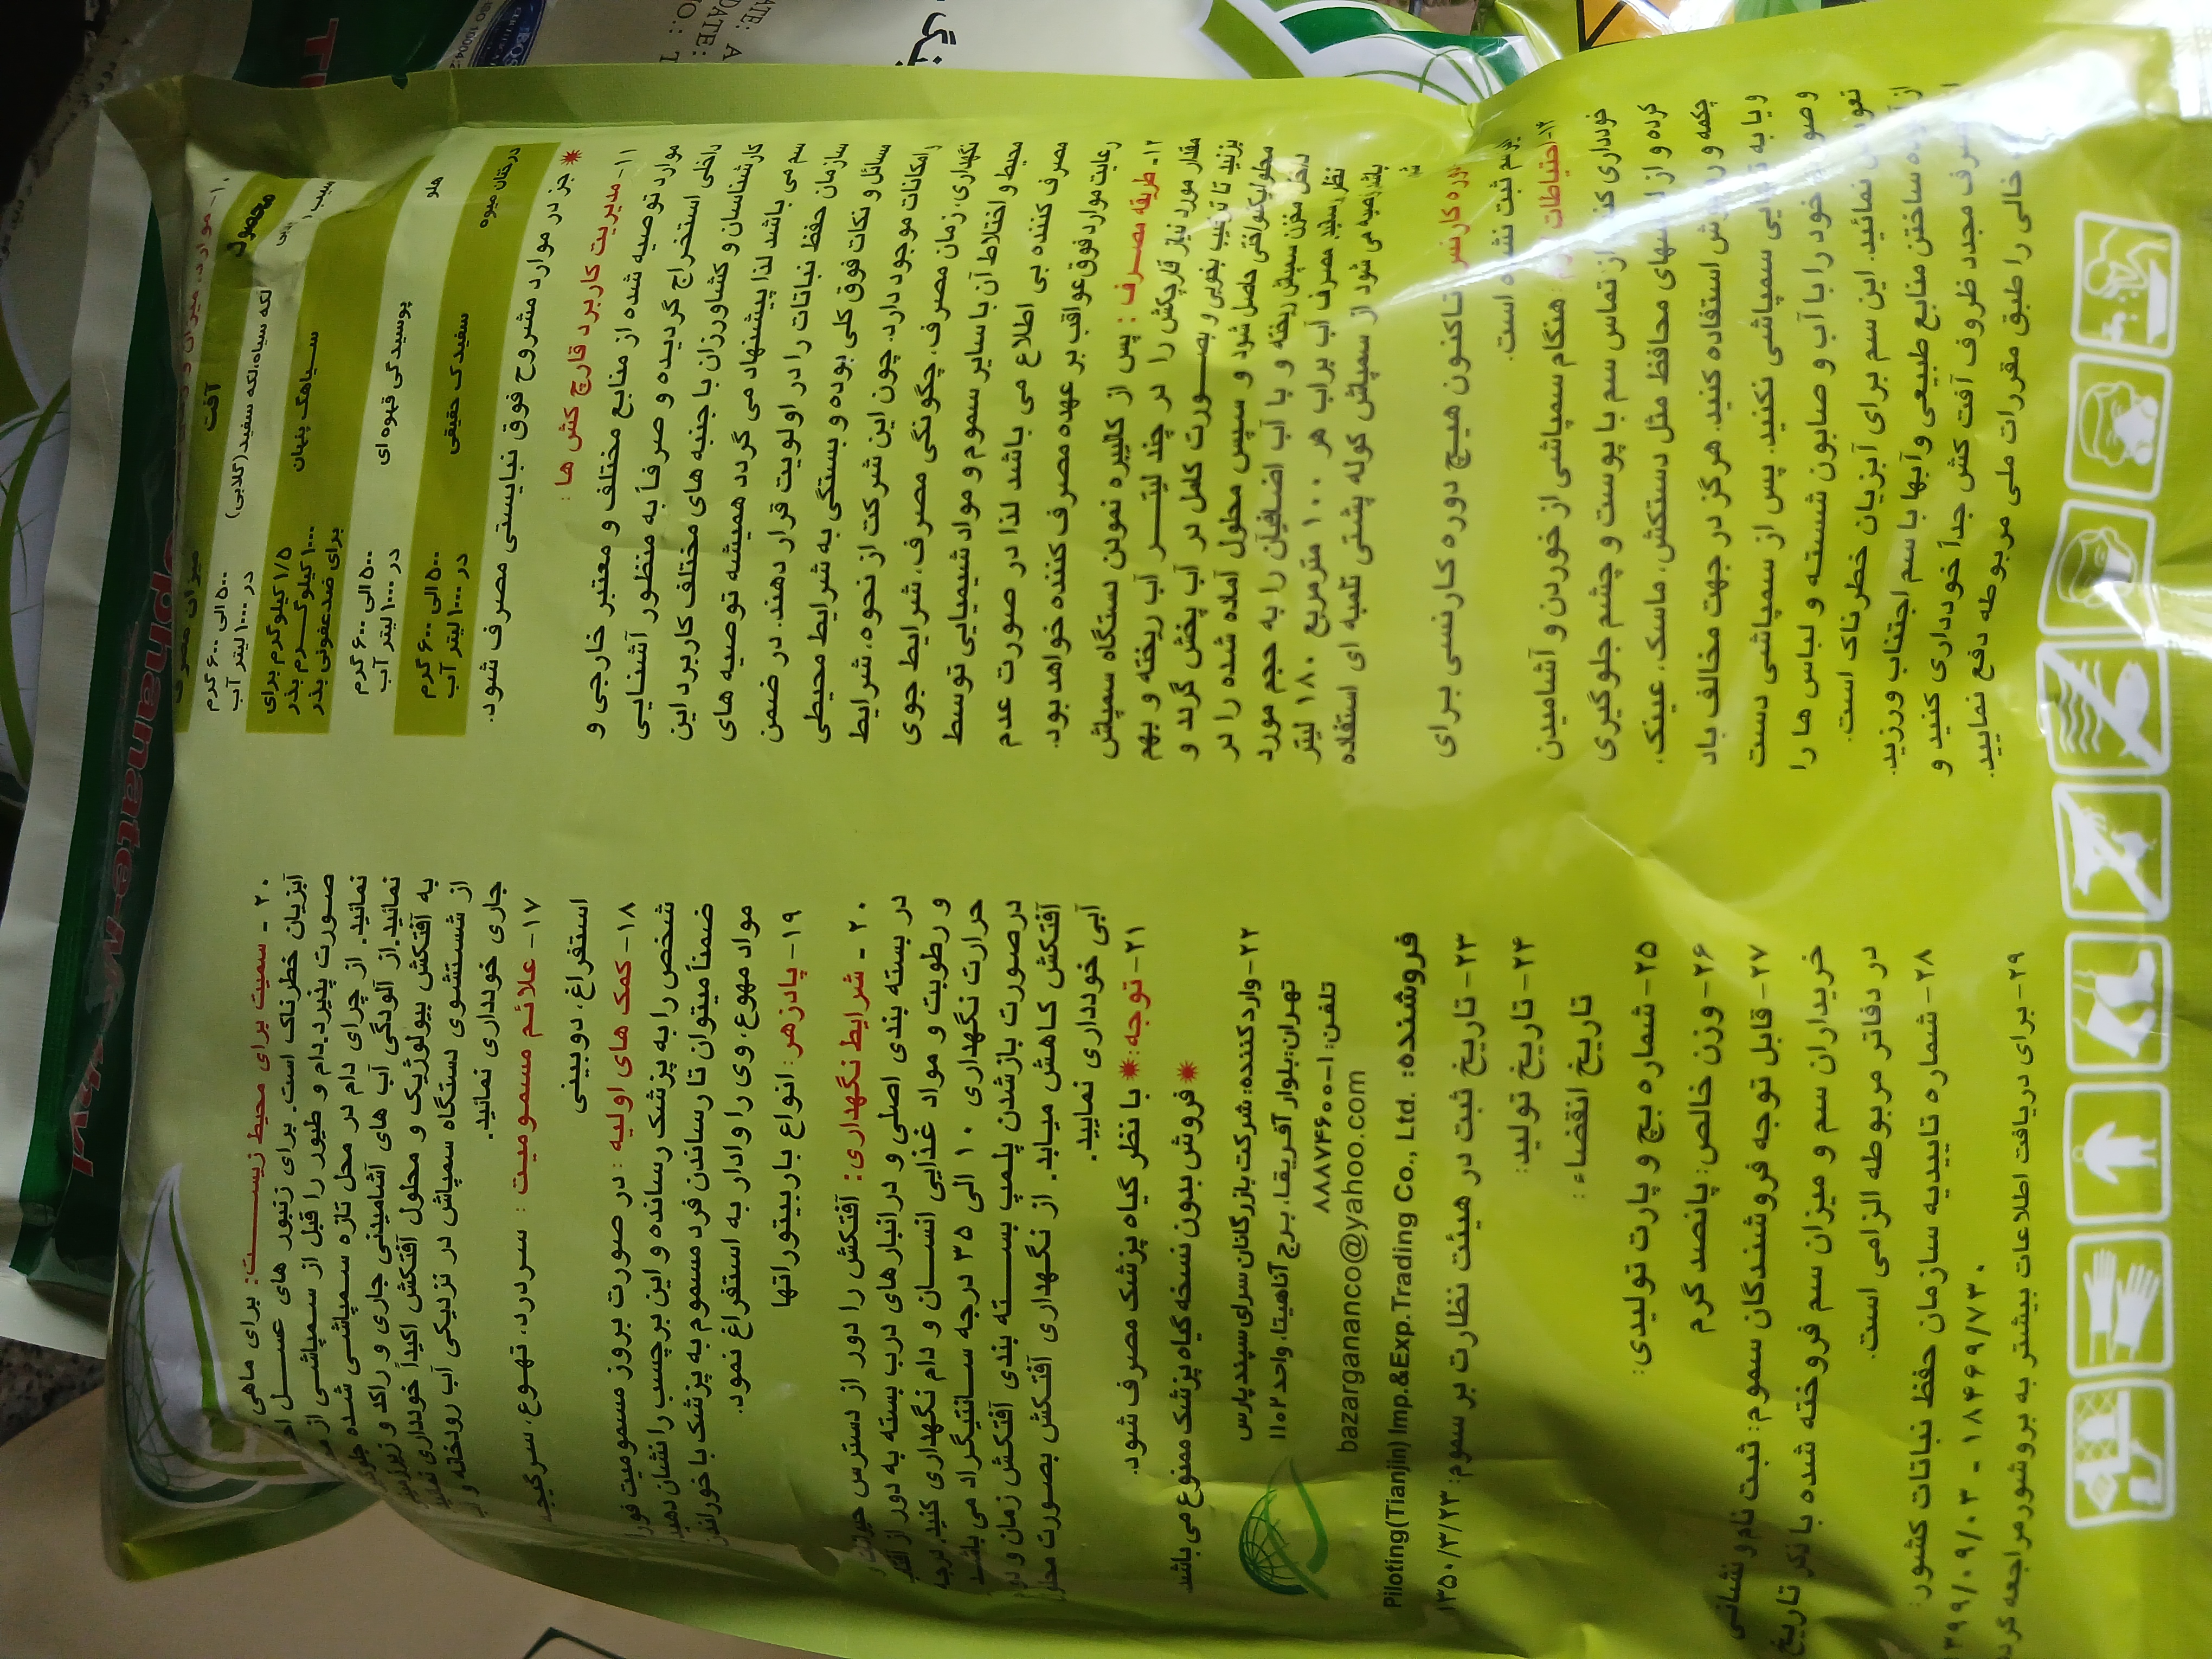 محصول آفت میزان مصرف
لکه سیاه، لکه سفید (گلابی) ۵۰۰ الی ۶۰۰ گرم
در ۱۰۰۰ لیتر آب
سیاهک پنهان ۱/۵ کیلوگرم برای
۱۰۰۰ کیلوگرم بذر
برای ضدعفونی بذر
هلو پوسیدگی قهوه ای ۵۰۰ الی ۶۰۰ گرم
در ۱۰۰۰ لیتر آب
درختان میوه سفیدک حقیقی ۵۰۰ الی ۶۰۰ گرم
در ۱۰۰۰ لیتر آب
* جز در موارد مشروح فوق نبایستی مصرف شود.
۱۱- مدیریت کاربرد قارچ کش ها :
موارد توصیه شده از منابع مختلف و معتبر خارجی و
داخلی استخراج گردیده و صرفاً به منظور آشنایی
کارشناسان و کشاورزان با جنبه های مختلف کاربرد این
سم می باشد لذا پیشنهاد می گردد همیشه توصیه های
سازمان حفظ نباتات را در اولویت قرار دهند. در ضمن
مسائل و نکات فوق کلی بوده و بستگی به شرایط محیطی
و امکانات موجود دارد. چون این شرکت از نحوه، شرایط
نگهداری، زمان مصرف، چگونگی مصرف، شرایط جوی
محیط و اختلاط آن با سایر سموم و مواد شیمیایی توسط
مصرف کننده بی اطلاع می باشد لذا در صورت عدم
رعایت موارد فوق عواقب بر عهده مصرف کننده خواهد بود.
۱۲- طریقه مصرف : پس از کالیبره نمودن دستگاه سمپاش
مقدار مورد نیاز قارچکش را در چند لیتر آب ریخته و بهم
بزنید تا ترکیب بخوبی و بصورت کامل در آب پخش گردد و
محلول یکنواختی حاصل شود و سپس محلول آماده شده را در
داخل مخزن سمپاش ریخته و با آب اضافی آن را به حجم مورد
نظر رسانید. مصرف آب برای هر ۱۰۰ مترمربع ۱۸۰ لیتر
باشد توصیه می شود از سمپاش کوله پشتی تلمبه ای استفاده
دوره کارنس تاکنون هیچ دوره کارنسی برای
سم ثبت نشده است.
۱۳- احتیاطات : هنگام سمپاشی از خوردن و آشامیدن
خودداری کنید از تماس سم با پوست و چشم جلوگیری
کرده و از لباسهای محافظ مثل دستکش، ماسک، عینک،
چکمه و روپوش استفاده کنید. هرگز در جهت مخالف باد
و یا به تنهایی سمپاشی نکنید. پس از سمپاشی دست
و صورت خود را با آب و صابون شسته و لباس ها را
تعویض نمائید. این سم برای آبزیان خطرناک است.
از آلوده ساختن منابع طبیعی و آبها با سم اجتناب ورزید.
مصرف مجدد ظروف آفت کش جداً خودداری کنید و
خالی را طبق مقررات ملی مربوطه دفع نمایید.
۲۰ - سمیت برای محیط زیست: برای ماهی
آبزیان خطرناک است. برای زنبور های عسل
صورت پذیرد. دام و طیور را قبل از سمپاشی از
نمائید. از چرای دام در محل تازه سمپاشی شده
نمائید. از آلودگی آب های آشامیدنی جاری و راکد و
به آفتکش بیولوژیک و محلول آفتکش اکیداً خودداری
از شستشوی دستگاه سمپاش در نزدیکی آب رودخانه و
جاری خودداری نمائید.
۱۷- علائم مسمومیت : سردرد، تهوع، سرگیجه
استفراغ، دوبینی
۱۸- کمک های اولیه : در صورت بروز مسمومیت فورا
شخص را به پزشک رسانده و این برچسب را نشان دهید
ضمناً میتوان تا رساندن فرد مسموم به پزشک با خوراندن
مواد مهوع، وی را وادار به استفراغ نمود.
۱۹- پادزهر : انواع باربیتوراتها
۲۰ - شرایط نگهداری: آفتکش را دور از دسترس
در بسته بندی اصلی و در انبارهای درب بسته به دور از
و رطوبت و مواد غذایی انسان و دام نگهداری کنید. درجه
حرارت نگهداری ۱۰ الی ۳۵ درجه سانتیگراد می باشد
درصورت بازشدن پلمپ بسته بندی آفتکش زمان
آفتکش کاهش میابد. از نگهداری آفتکش بصورت محلول
آبی خودداری نمایید.
۲۱- توجه: * با نظر گیاه پزشک مصرف شود.
* فروش بدون نسخه گیاه پزشک ممنوع می باشد
۲۲- وارد کننده: شرکت بازرگانان سرای سپند پارس
تهران: بلوار آفریقا، برج آناهیتا، واحد ۱۱۰۲
تلفن: ۱-۸۸۸۷۴۶۰۰
bazargananco@yahoo.com
فروشنده: Piloting(Tianjin) Imp.&Exp.Trading Co., Ltd.
۲۳- تاریخ ثبت در هیئت نظارت بر سموم: ۱۳۵۰/۳/۲۳
۲۴- تاریخ تولید:
تاریخ انقضاء :
۲۵- شماره بچ و پارت تولیدی:
۲۶- وزن خالص: پانصد گرم
۲۷- قابل توجه فروشندگان سموم: ثبت نام و نشانی
خریداران سم و میزان سم فروخته شده با ذکر تاریخ
در دفاتر مربوطه الزامی است.
۲۸- شماره تاییدیه سازمان حفظ نباتات کشور:
۱۳۹۹/۰۹/۰۳ - ۱۸۴۶۹/۷۳۰
۲۹- برای دریافت اطلاعات بیشتر به بروشور مراجعه